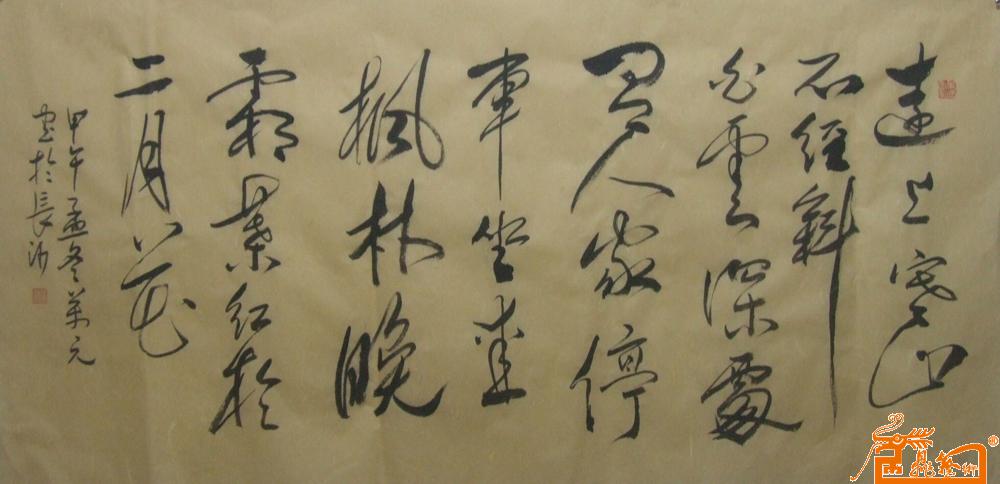 遠上寒山
石徑斜
白雲深處
人家停
車坐愛
楓林晚
霜葉紅於
二月花
甲午孟冬萬元
書於長沙